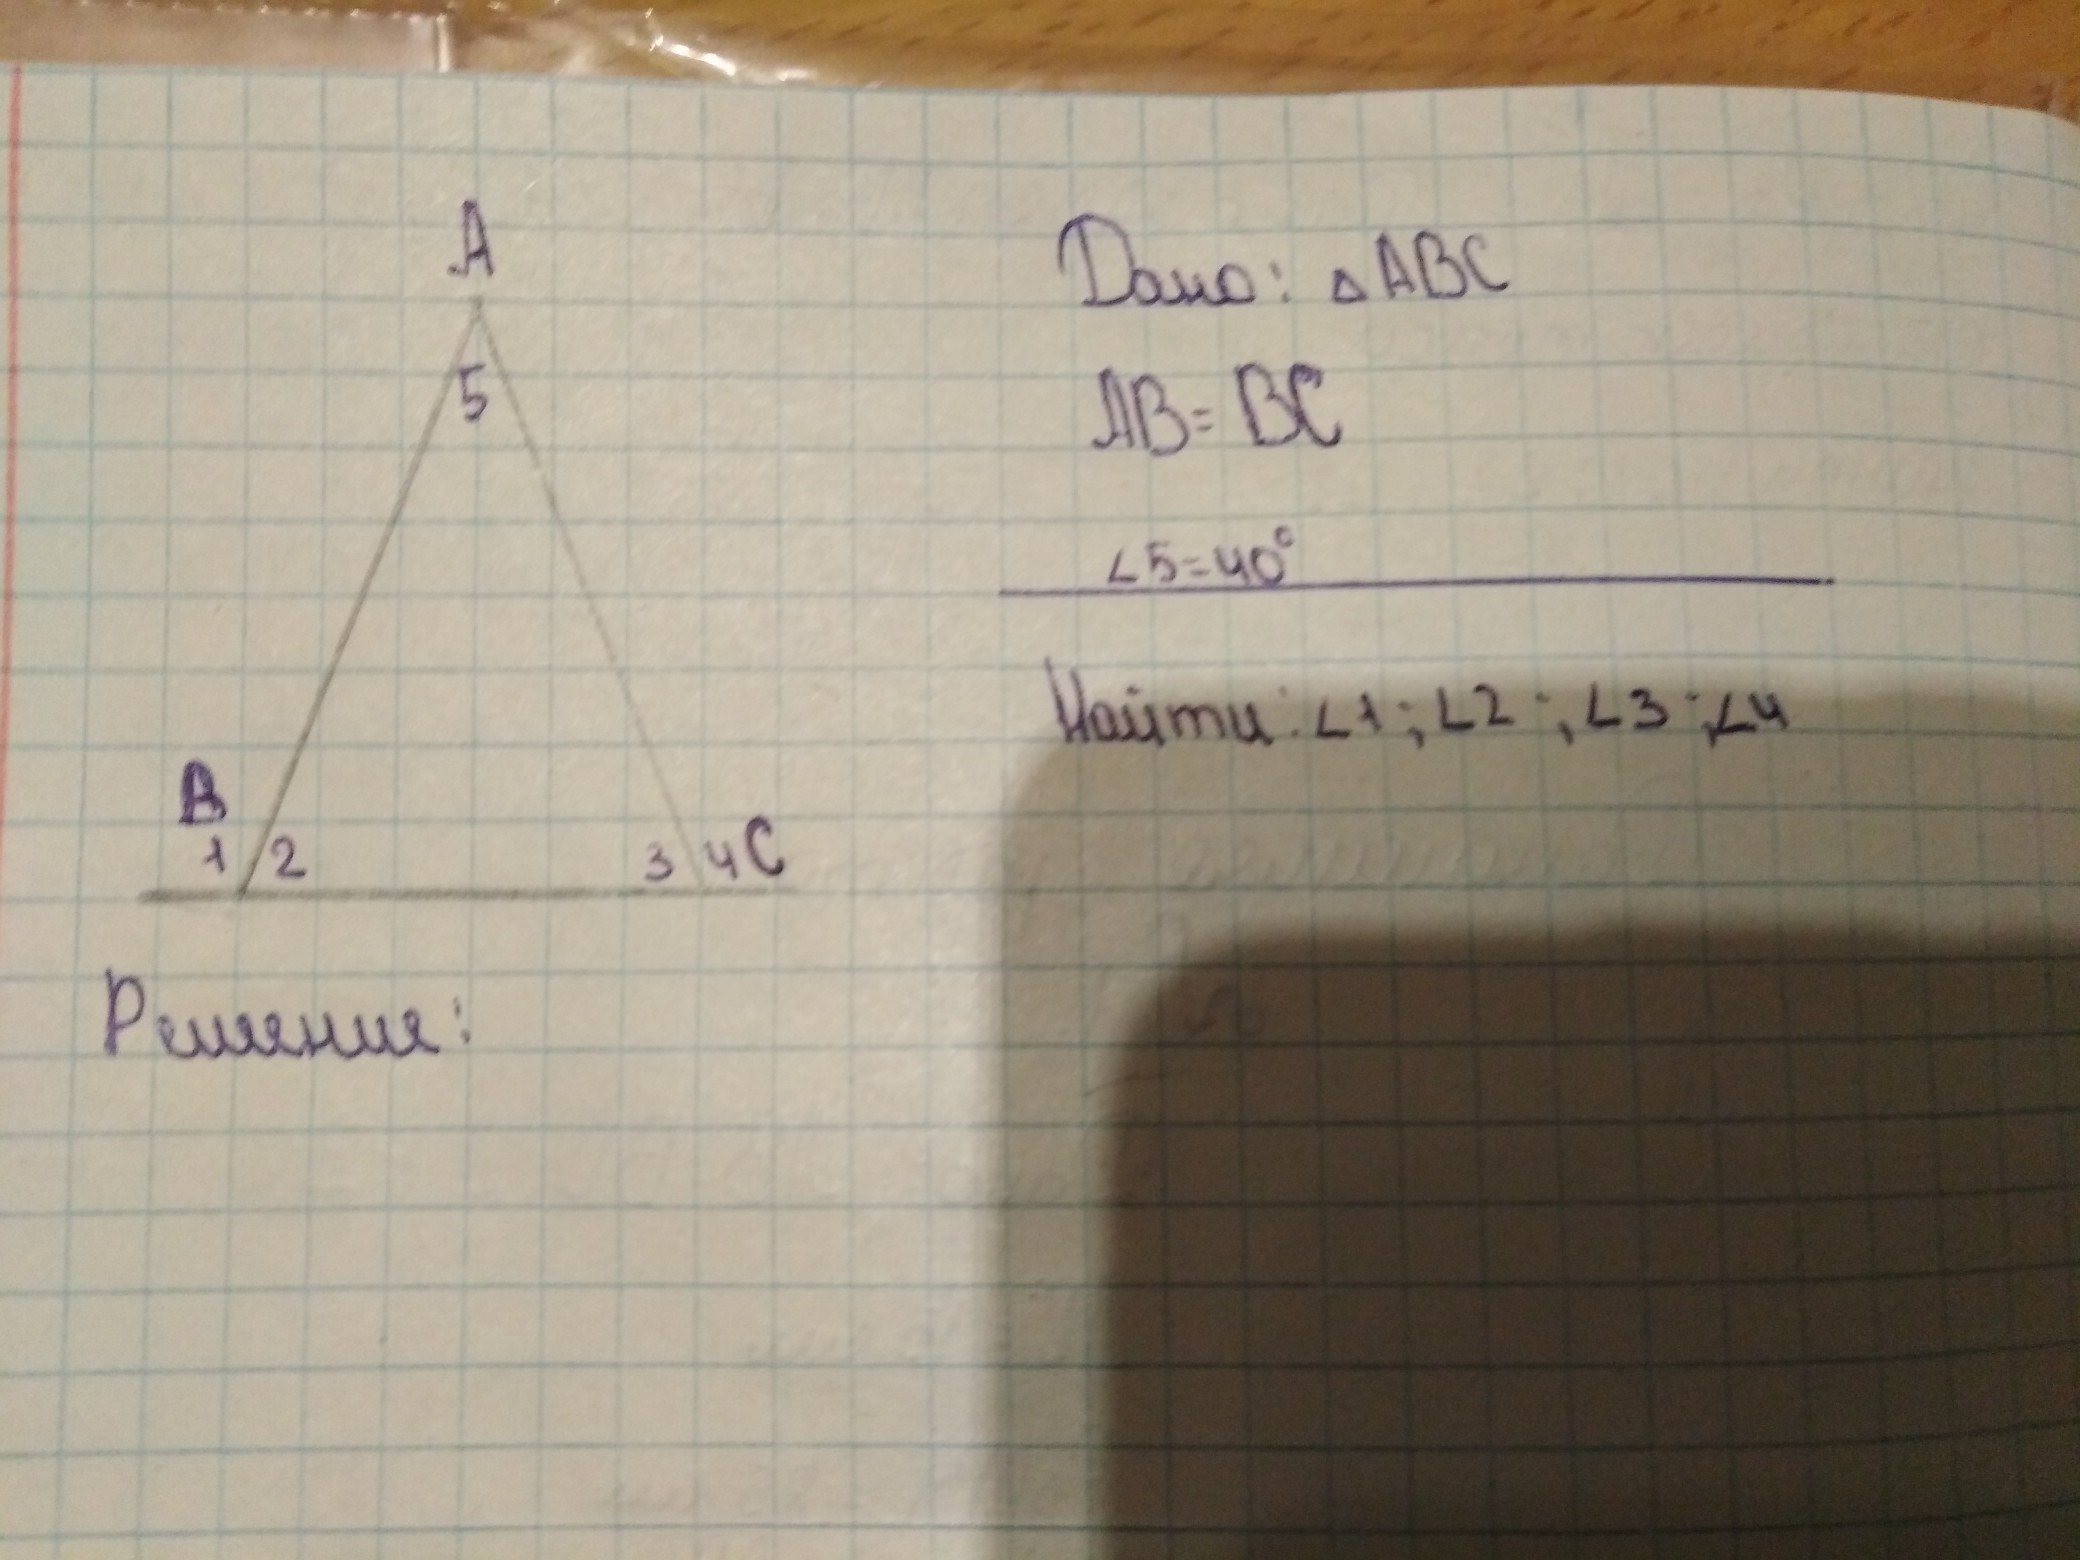 A
5
B
1 2
3 4 C
Дано: △ABC
AB=BC
∠5=40°
Найти: ∠1; ∠2; ∠3; ∠4
Решение: